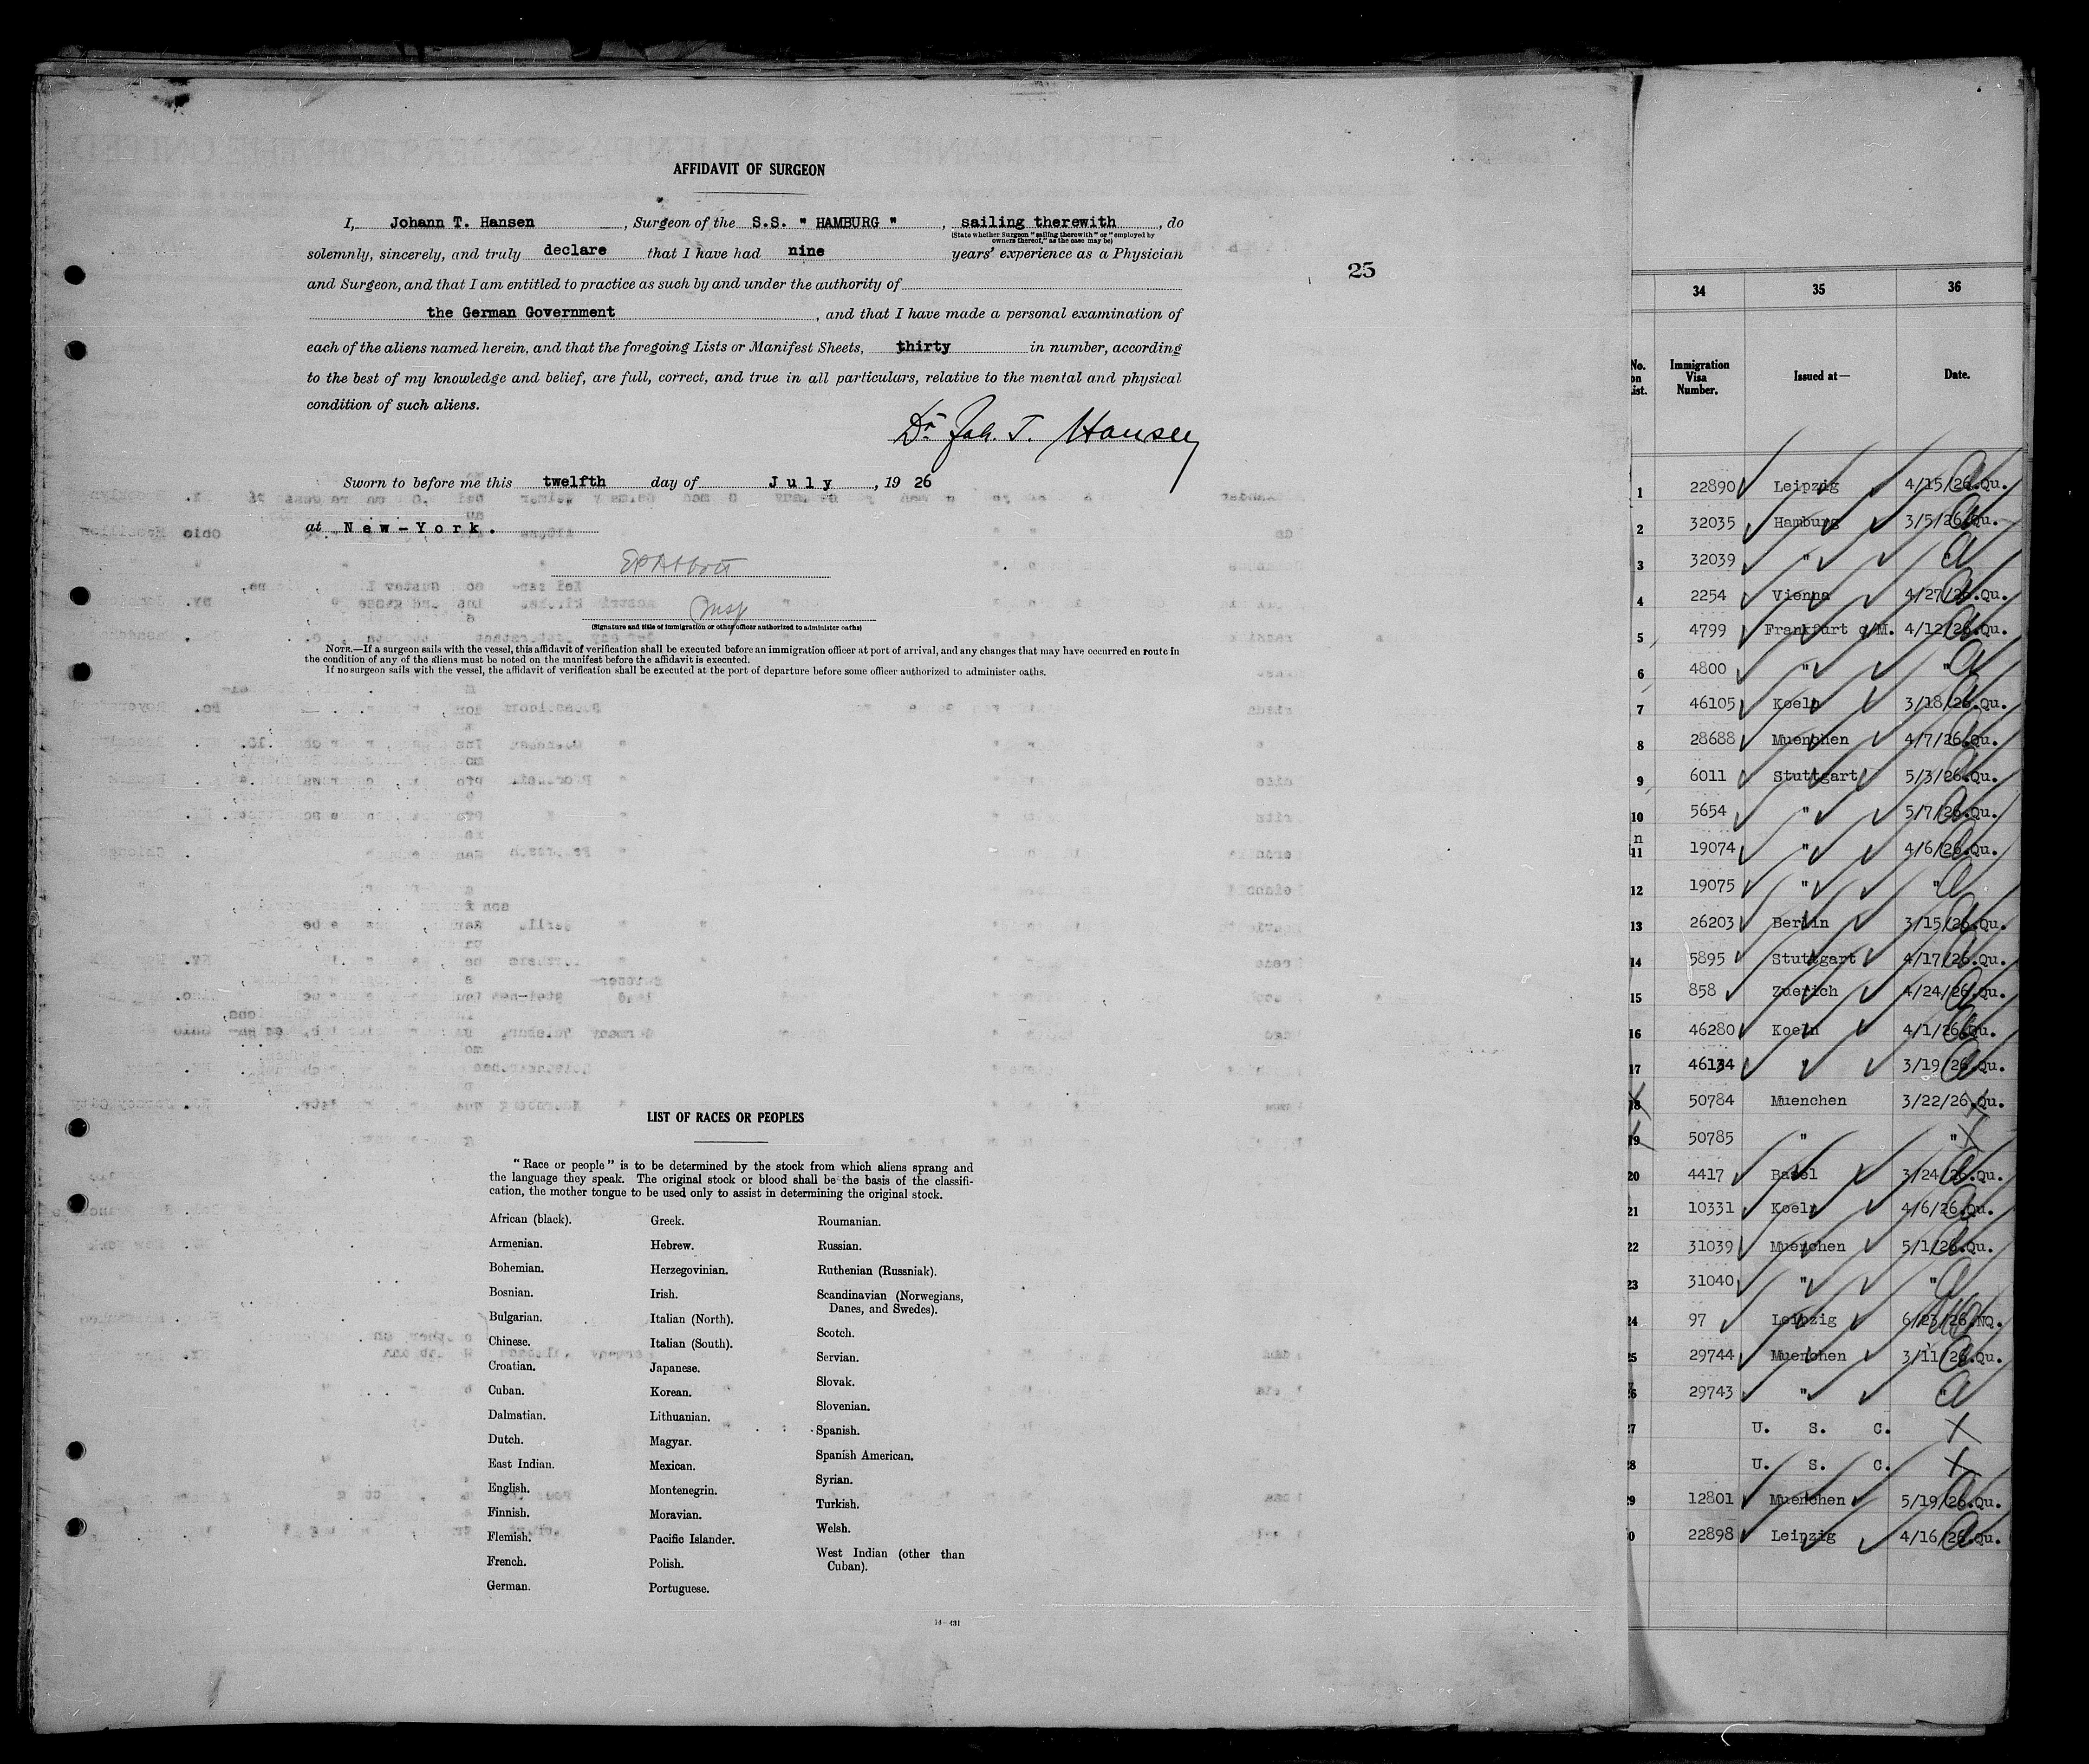 AFFIDAVIT OF SURGEON
I, Johann T. Hansen, Surgeon of the S.S. " HAMBURG ", sailing therewith, do
(State whether Surgeon "sailing therewith" or "employed by
owners thereof," as the case may be)
solemnly, sincerely, and truly declare that I have had nine years' experience as a Physician
and Surgeon, and that I am entitled to practice as such by and under the authority of
the German Government, and that I have made a personal examination of
each of the aliens named herein, and that the foregoing Lists or Manifest Sheets, thirty in number, according
to the best of my knowledge and belief, are full, correct, and true in all particulars, relative to the mental and physical
condition of such aliens.
Dr. Joh. T. Hansen
Sworn to before me this twelfth day of July, 19 26
at New-York.
Insp
(Signature and title of immigration or other officer authorized to administer oaths)
NOTE.—If a surgeon sails with the vessel, this affidavit of verification shall be executed before an immigration officer at port of arrival, and any changes that may have occurred en route in
the condition of any of the aliens must be noted on the manifest before the affidavit is executed.
If no surgeon sails with the vessel, the affidavit of verification shall be executed at the port of departure before some officer authorized to administer oaths.
25
LIST OF RACES OR PEOPLES
"Race or people" is to be determined by the stock from which aliens sprang and
the language they speak. The original stock or blood shall be the basis of the classifi-
cation, the mother tongue to be used only to assist in determining the original stock.
African (black).
Armenian.
Bohemian.
Bosnian.
Bulgarian.
Chinese.
Croatian.
Cuban.
Dalmatian.
Dutch.
East Indian.
English.
Finnish.
Flemish.
French.
German.
Greek.
Hebrew.
Herzegovinian.
Irish.
Italian (North).
Italian (South).
Japanese.
Korean.
Lithuanian.
Magyar.
Mexican.
Montenegrin.
Moravian.
Pacific Islander.
Polish.
Portuguese.
Roumanian.
Russian.
Ruthenian (Russniak).
Scandinavian (Norwegians,
Danes, and Swedes).
Scotch.
Servian.
Slovak.
Slovenian.
Spanish.
Spanish American.
Syrian.
Turkish.
Welsh.
West Indian (other than
Cuban).
14—431
34 35 36
No. on List. Immigration Visa Number. Issued at— Date.
1 22890 Leipzig 4/15/26.Qu.
2 32035 Hamburg 3/5/26.Qu.
3 32039 " "
4 2254 Vienna 4/27/26.Qu.
5 4799 Frankfurt o/M. 4/12/26.Qu.
6 4800 " "
7 46105 Koeln 3/18/26.Qu.
8 28688 Muenchen 4/7/26.Qu.
9 6011 Stuttgart 5/3/26.Qu.
10 5654 " 5/7/26.Qu.
11 19074 " 4/6/26.Qu.
12 19075 " "
13 26203 Berlin 3/15/26.Qu.
14 5895 Stuttgart 4/17/26.Qu.
15 858 Zuerich 4/24/26.Qu.
16 46280 Koeln 4/1/26.Qu.
17 46134 " 3/19/26.Qu.
18 50784 Muenchen 3/22/26.Qu.
19 50785 " "
20 4417 Basel 3/24/26.Qu.
21 10331 Koeln 4/6/26.Qu.
22 31039 Muenchen 5/1/26.Qu.
23 31040 " "
24 97 Leipzig 6/23/26.NQ.
25 29744 Muenchen 3/11/26.Qu.
26 29743 " "
27 U. S. C.
28 U. S. C.
29 12801 Muenchen 5/19/26.Qu.
30 22898 Leipzig 4/16/26.Qu.